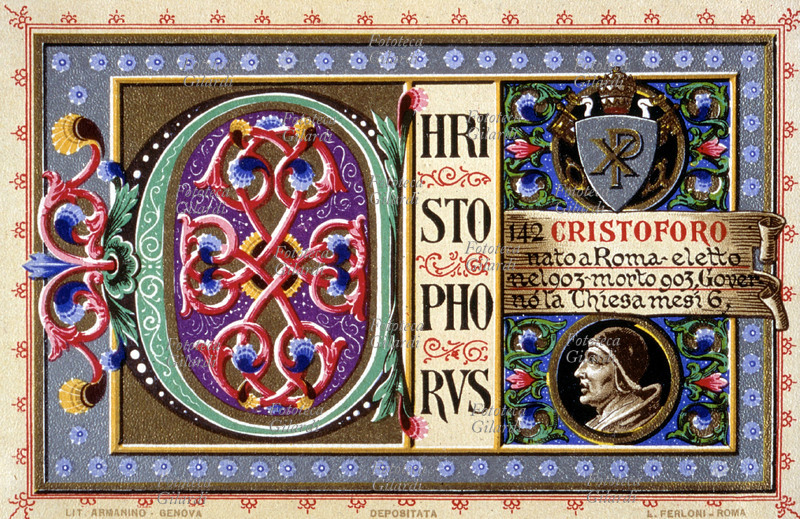 C
HRI
STO
PHO
RVS
142 CRISTOFORO
nato a Roma - eletto
nel 903 - morto 903, Gover
nò la Chiesa mesi 6,
LIT. ARMANINO - GENOVA
DEPOSITATA
L. FERLONI - ROMA
Fototeca
Gilardi